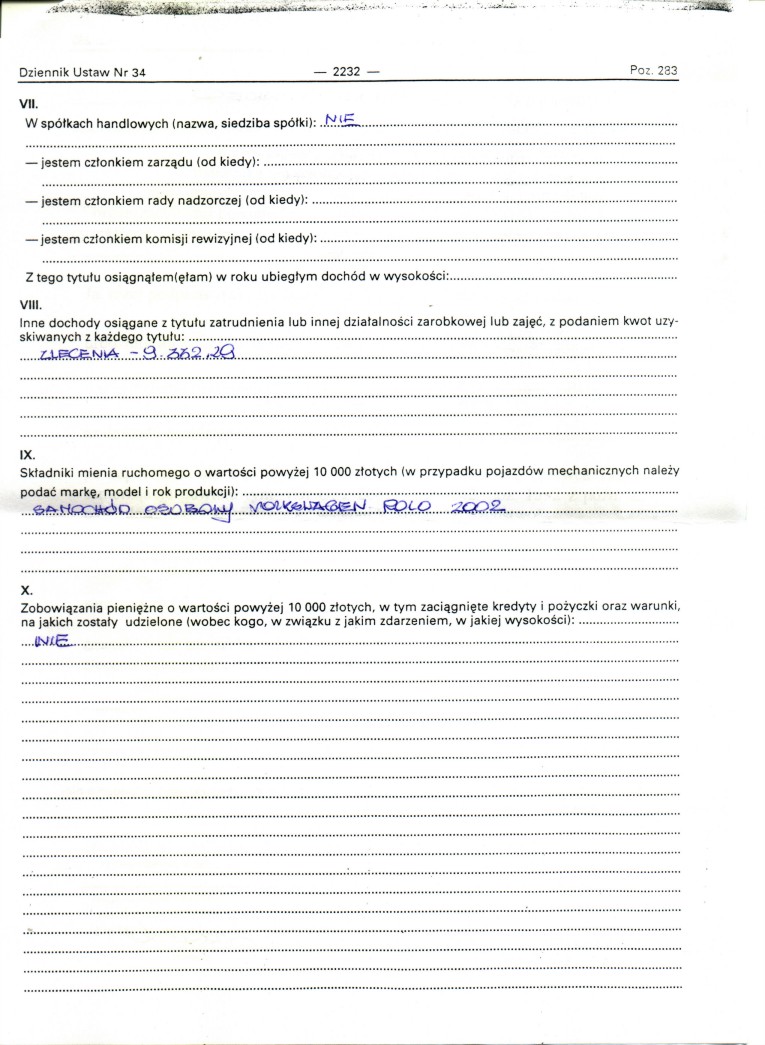 Dziennik Ustaw Nr 34 — 2232 — Poz. 283
VII.
W spółkach handlowych (nazwa, siedziba spółki): NIE
— jestem członkiem zarządu (od kiedy):
— jestem członkiem rady nadzorczej (od kiedy):
— jestem członkiem komisji rewizyjnej (od kiedy):
Z tego tytułu osiągnąłem(ęłam) w roku ubiegłym dochód w wysokości:
VIII.
Inne dochody osiągane z tytułu zatrudnienia lub innej działalności zarobkowej lub zajęć, z podaniem kwot uzy-
skiwanych z każdego tytułu:
ZLECENIA - 9.332,29
IX.
Składniki mienia ruchomego o wartości powyżej 10 000 złotych (w przypadku pojazdów mechanicznych należy
podać markę, model i rok produkcji):
SAMOCHÓD OSOBOWY VOLKSWAGEN POLO 2002
X.
Zobowiązania pieniężne o wartości powyżej 10 000 złotych, w tym zaciągnięte kredyty i pożyczki oraz warunki,
na jakich zostały udzielone (wobec kogo, w związku z jakim zdarzeniem, w jakiej wysokości):
NIE